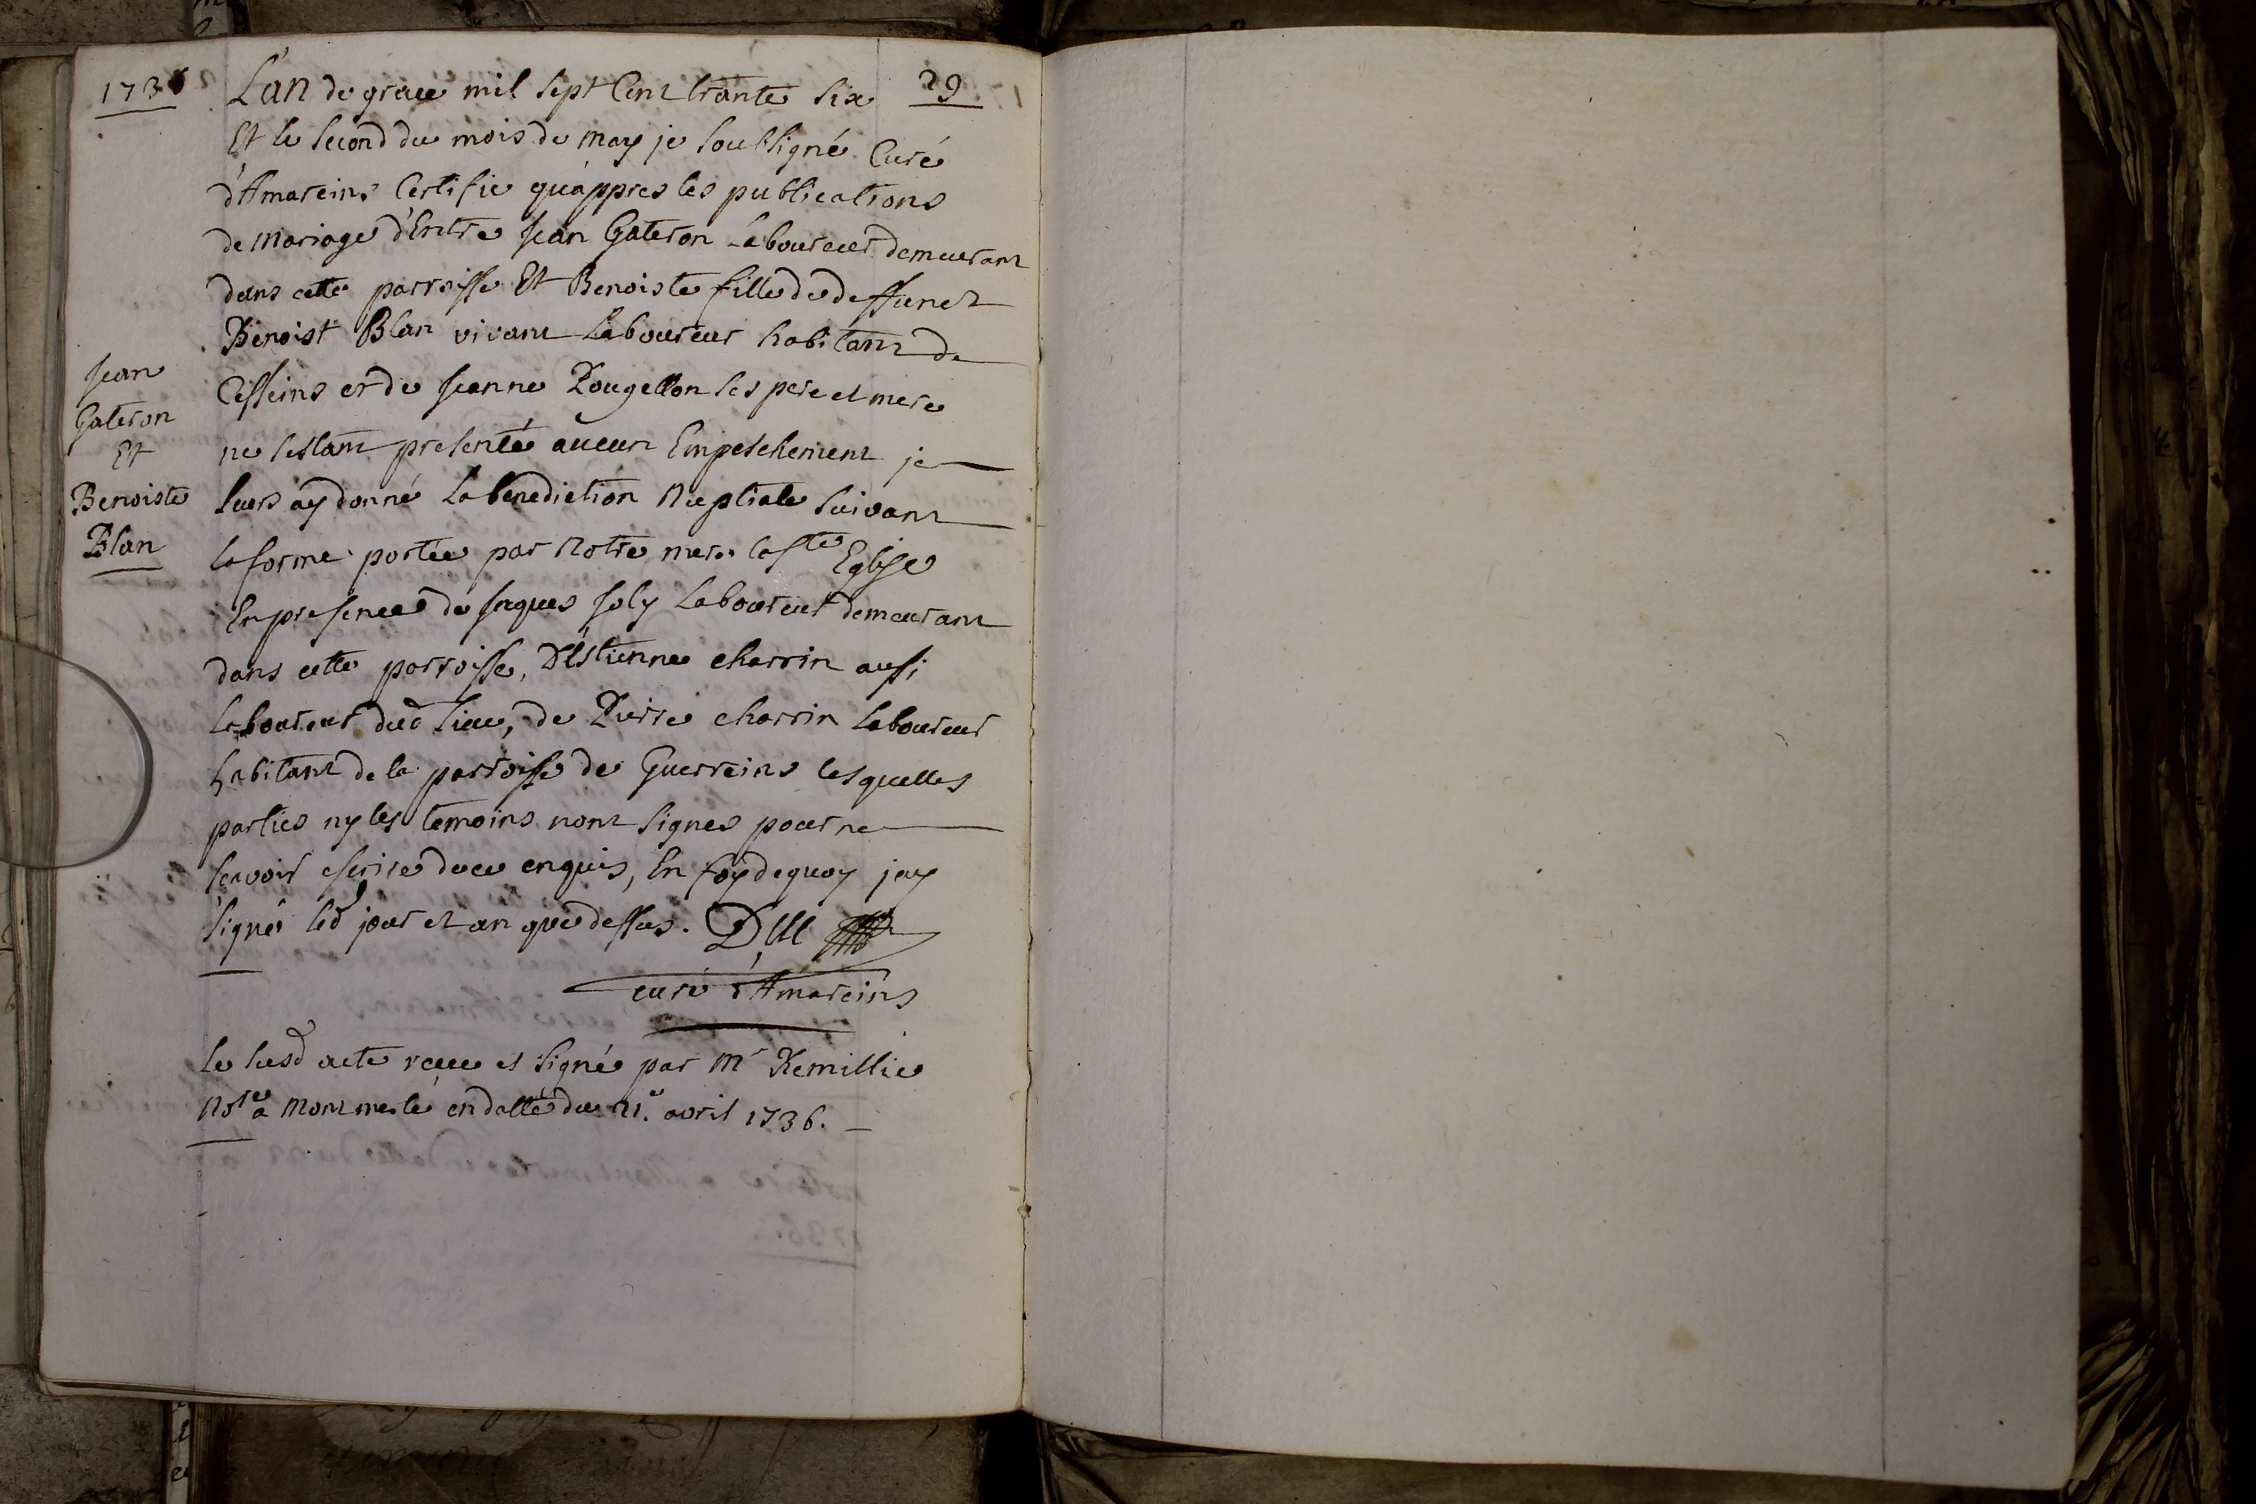 1736
29
L'an de grace mil sept Cent trante six
Et le second du mois de may je soubsigné Curé
d'Amareins Certifie qu'appres les publications
de mariage d'Entre Jean Gateron Laboureur demeurant
dans cette parroisse Et Benoiste fille de deffunct
Benoist Blan vivant Laboureur habitant de
Cesseins et de Jeanne Pougellon ses pere et mere
ne s'estant presenté aucun Empeschement je
leurs ay donné La benediction Nuptiale suivant
la forme portée par Notre mere la ste Eglise
En presence de Jaques Joly Laboureur demeurant
dans cette parroisse, D'Estienne charrin aussi
laboureur dud lieu, de Pierre charrin laboureur
habitant de la parroisse de Guerreins lesquelles
parties ny les temoins n'ont signes pour ne
scavoir escrire de ce enquis, En foy de quoy jay
signé led jour et an que dessus.
curé d'Amareins
Le susd acte receu et signé par Mr Remillie
Notre a Montmerle en datte du 21e avril 1736.
Jean
Gateron
Et
Benoiste
Blan